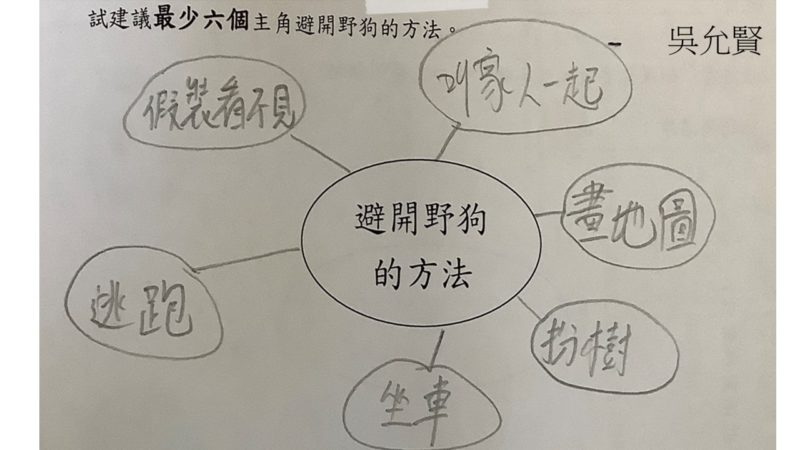 試建議最少六個主角避開野狗的方法。
吳允賢
假裝看不見
叫家人一起
畫地圖
避開野狗
的方法
逃跑
扮樹
坐車